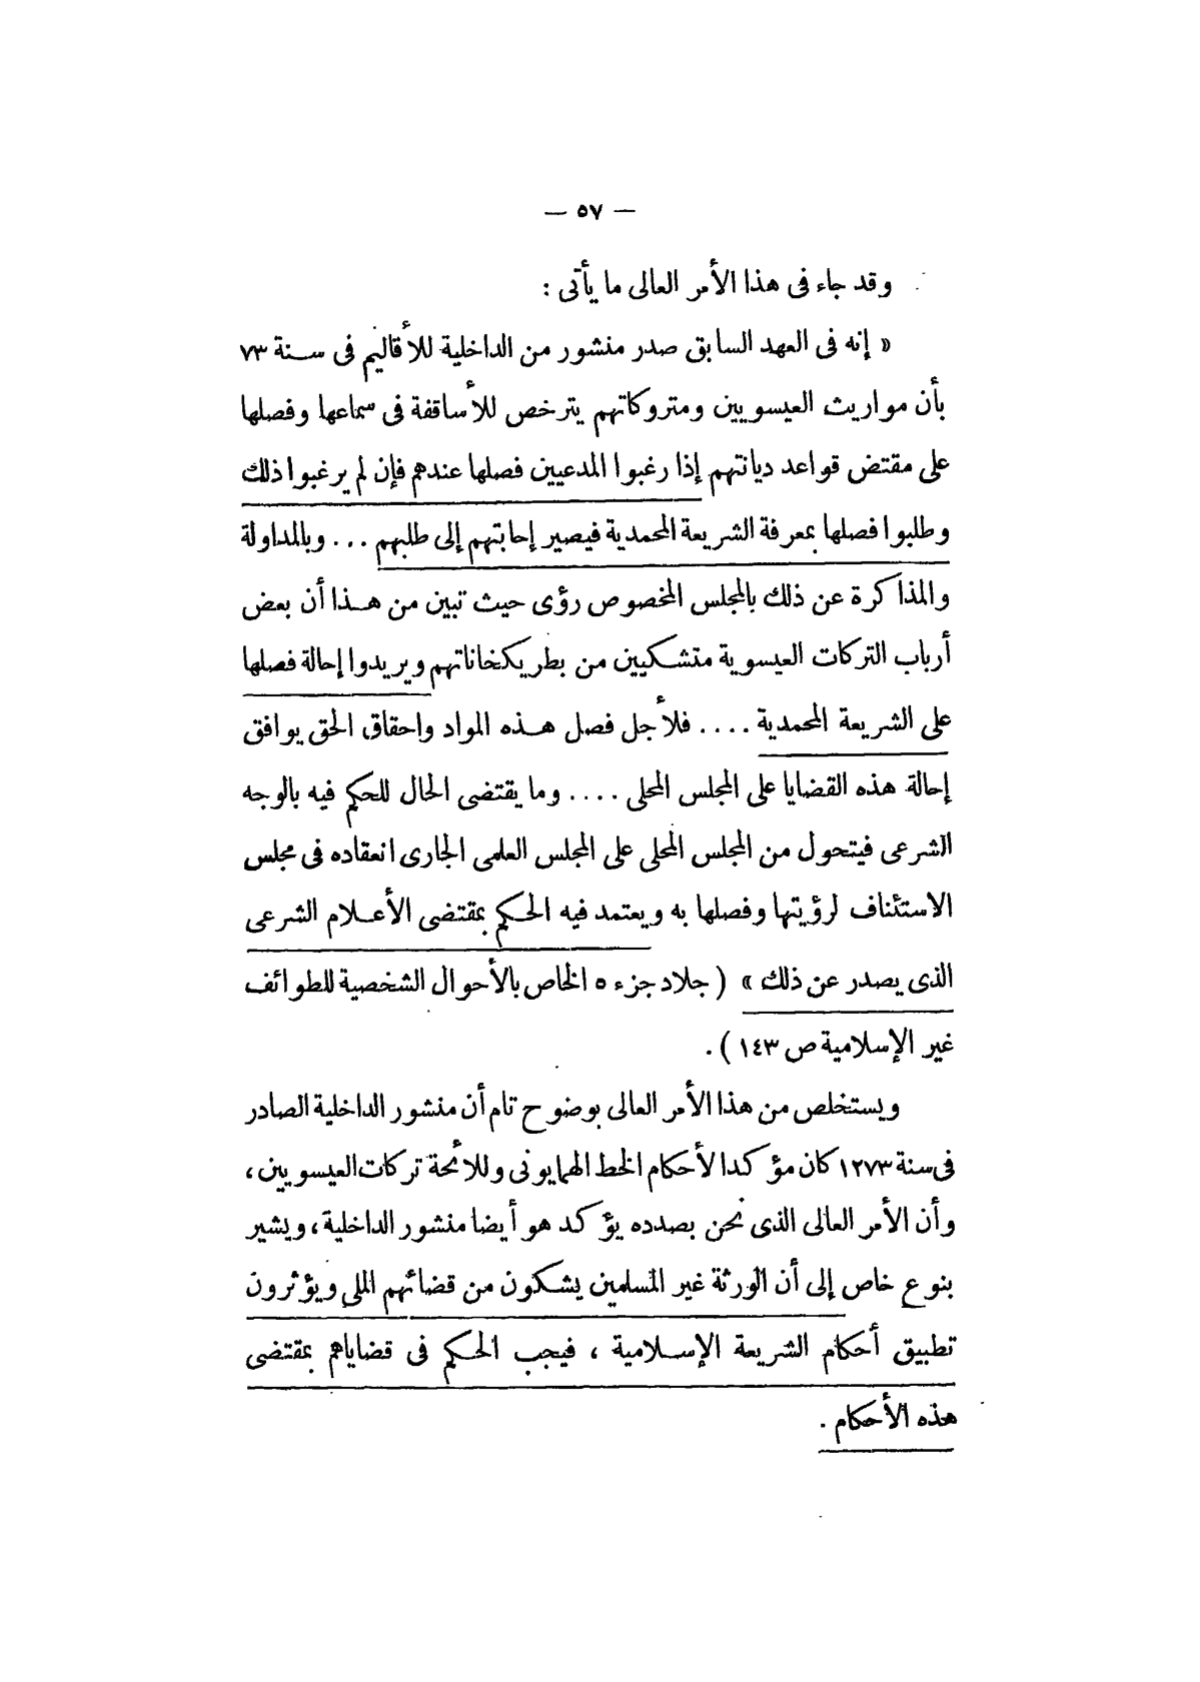 — ٥٧ —
وقد جاء فى هذا الأمر العالى ما يأتى :
« إنه فى العهد السابق صدر منشور من الداخلية للأقاليم فى سنة ٧٣
بأن مواريث العيسويين ومتروكاتهم يترخص للأساقفة فى سماعها وفصلها
على مقتض قواعد ديانتهم إذا رغبوا المدعيين فصلها عندهم فإن لم يرغبوا ذلك
وطلبوا فصلها بمعرفة الشريعة المحمدية فيصير إحابتهم إلى طلبهم ... وبالمداولة
والمذاكرة عن ذلك بالمجلس المخصوص رؤى حيث تبين من هذا أن بعض
أرباب التركات العيسوية متشكيين من بطريكخاناتهم ويريدوا إحالة فصلها
على الشريعة المحمدية .... فلأجل فصل هذه المواد واحقاق الحق يوافق
إحالة هذه القضايا على المجلس المحلى .... وما يقتضى الحال للحكم فيه بالوجه
الشرعى فيتحول من المجلس المحلى على المجلس العلمى الجارى انعقاده فى مجلس
الاستئناف لرؤيتها وفصلها به ويعتمد فيه الحكم بمقتضى الأعلام الشرعى
الذى يصدر عن ذلك » ( جلاد جزء ٥ الخاص بالأحوال الشخصية للطوائف
غير الإسلامية ص ١٤٣ ) .
ويستخلص من هذا الأمر العالى بوضوح تام أن منشور الداخلية الصادر
فى سنة ١٢٧٣ كان مؤكدا لأحكام الخط الهمايونى وللائحة تركات العيسويين ،
وأن الأمر العالى الذى نحن بصدده يؤكد هو أيضا منشور الداخلية ، ويشير
بنوع خاص إلى أن الورثة غير المسلمين يشكون من قضائهم الملى ويؤثرون
تطبيق أحكام الشريعة الإسلامية ، فيجب الحكم فى قضاياهم بمقتضى
هذه الأحكام .